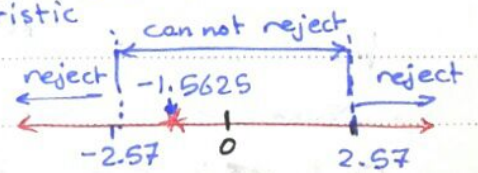 ristic
can not reject
reject -1.5625 reject
-2.57 0 2.57